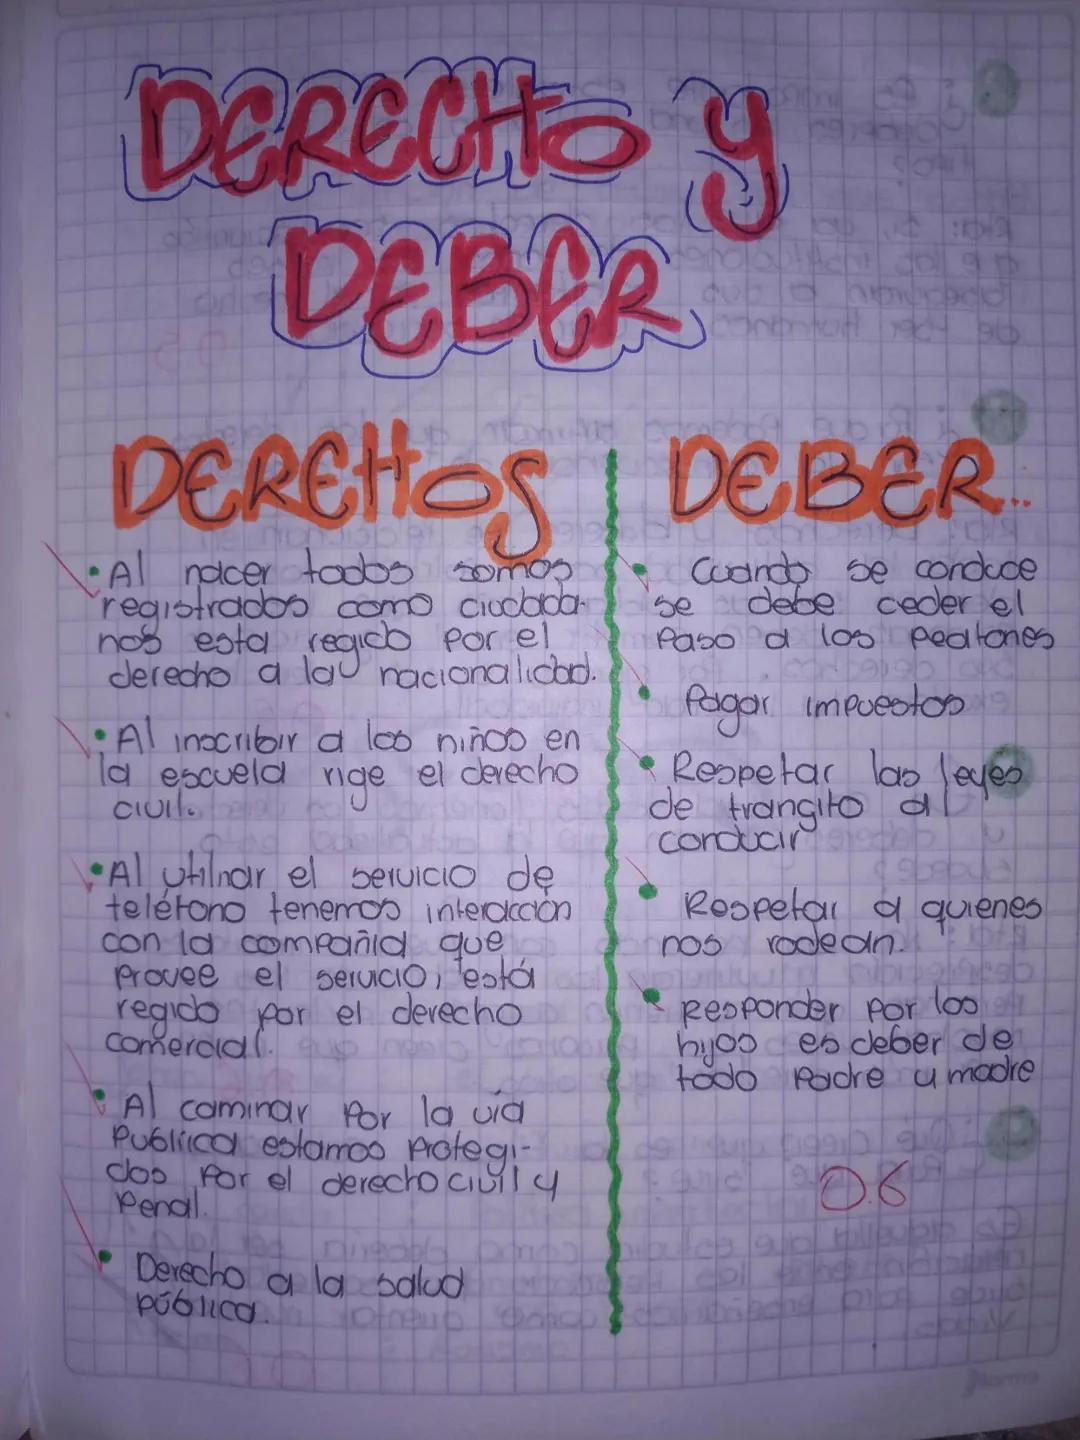 DERECHO y
DEBER
DERECHOS
• Al nacer todos somos
registrados como ciudada-
nos esta regido por el
derecho a la nacionalidad.
• Al inscribir a los niños en
la escuela rige el derecho
civil.
• Al utilnar el servicio de
teléfono tenemos interacción
con la compañia que
provee el servicio, está
regido por el derecho
comercial.
• Al caminar por la via
Publica estamos protegi-
dos por el derecho civil y
Penal.
• Derecho a la salud
pública.
DEBER...
• Cuando se conduce
se debe ceder el
Paso a los peatones
• Pagar impuestos
• Respetar las leyes
de trangito al
conducir
• Respetar a quienes
nos rodean.
• Responder por los
hijos es deber de
todo Padre y madre
0.6
Norma